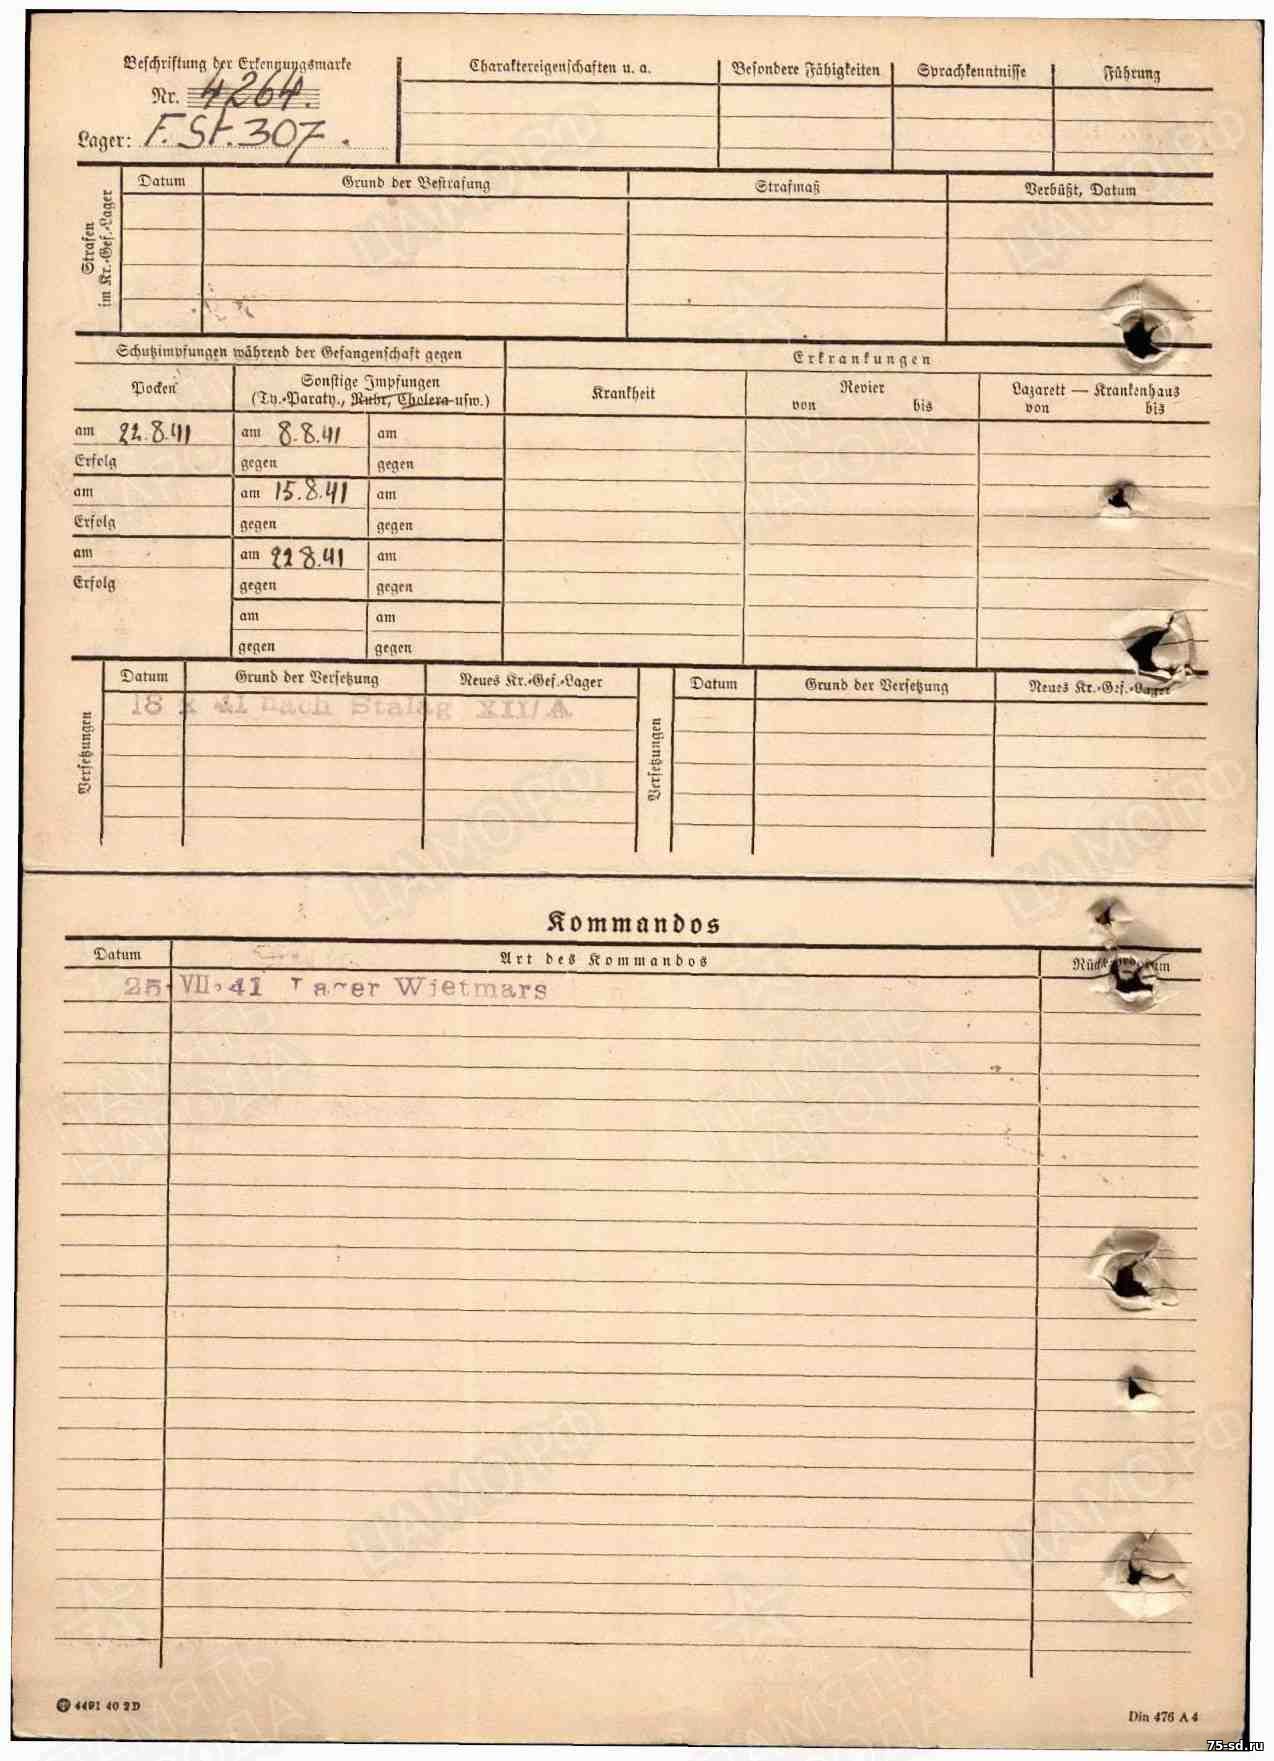 Beschriftung der Erkennungsmarke
Nr. 4264.
Lager: F.St.307.
Charaktereigenschaften u. a.
Besondere Fähigkeiten
Sprachkenntnisse
Führung
Strafen
im Kr.-Gef.-Lager
Datum
Grund der Bestrafung
Strafmaß
Verbüßt, Datum
Schutzimpfungen während der Gefangenschaft gegen
Erkrankungen
Pocken
Sonstige Impfungen
(Ty.-Paraty., Ruhr, Cholera usw.)
Krankheit
Revier
von bis
Lazarett — Krankenhaus
von bis
am 22.8.41 am 8.8.41 am
Erfolg gegen gegen
am am 15.8.41 am
Erfolg gegen gegen
am am 22 8.41 am
Erfolg gegen gegen
am am
gegen gegen
Versetzungen
Datum
Grund der Versetzung
Neues Kr.-Gef.-Lager
18 X 41 nach Stalag XII/A
Versetzungen
Datum
Grund der Versetzung
Neues Kr.-Gef.-Lager
Kommandos
Datum Art des Kommandos
25. VII. 41 Lager Wietmars
4491 40 2D
Din 476 A 4
ЦАМО.РФ
ПАМЯТЬ
НАРОДА
75-sd.ru